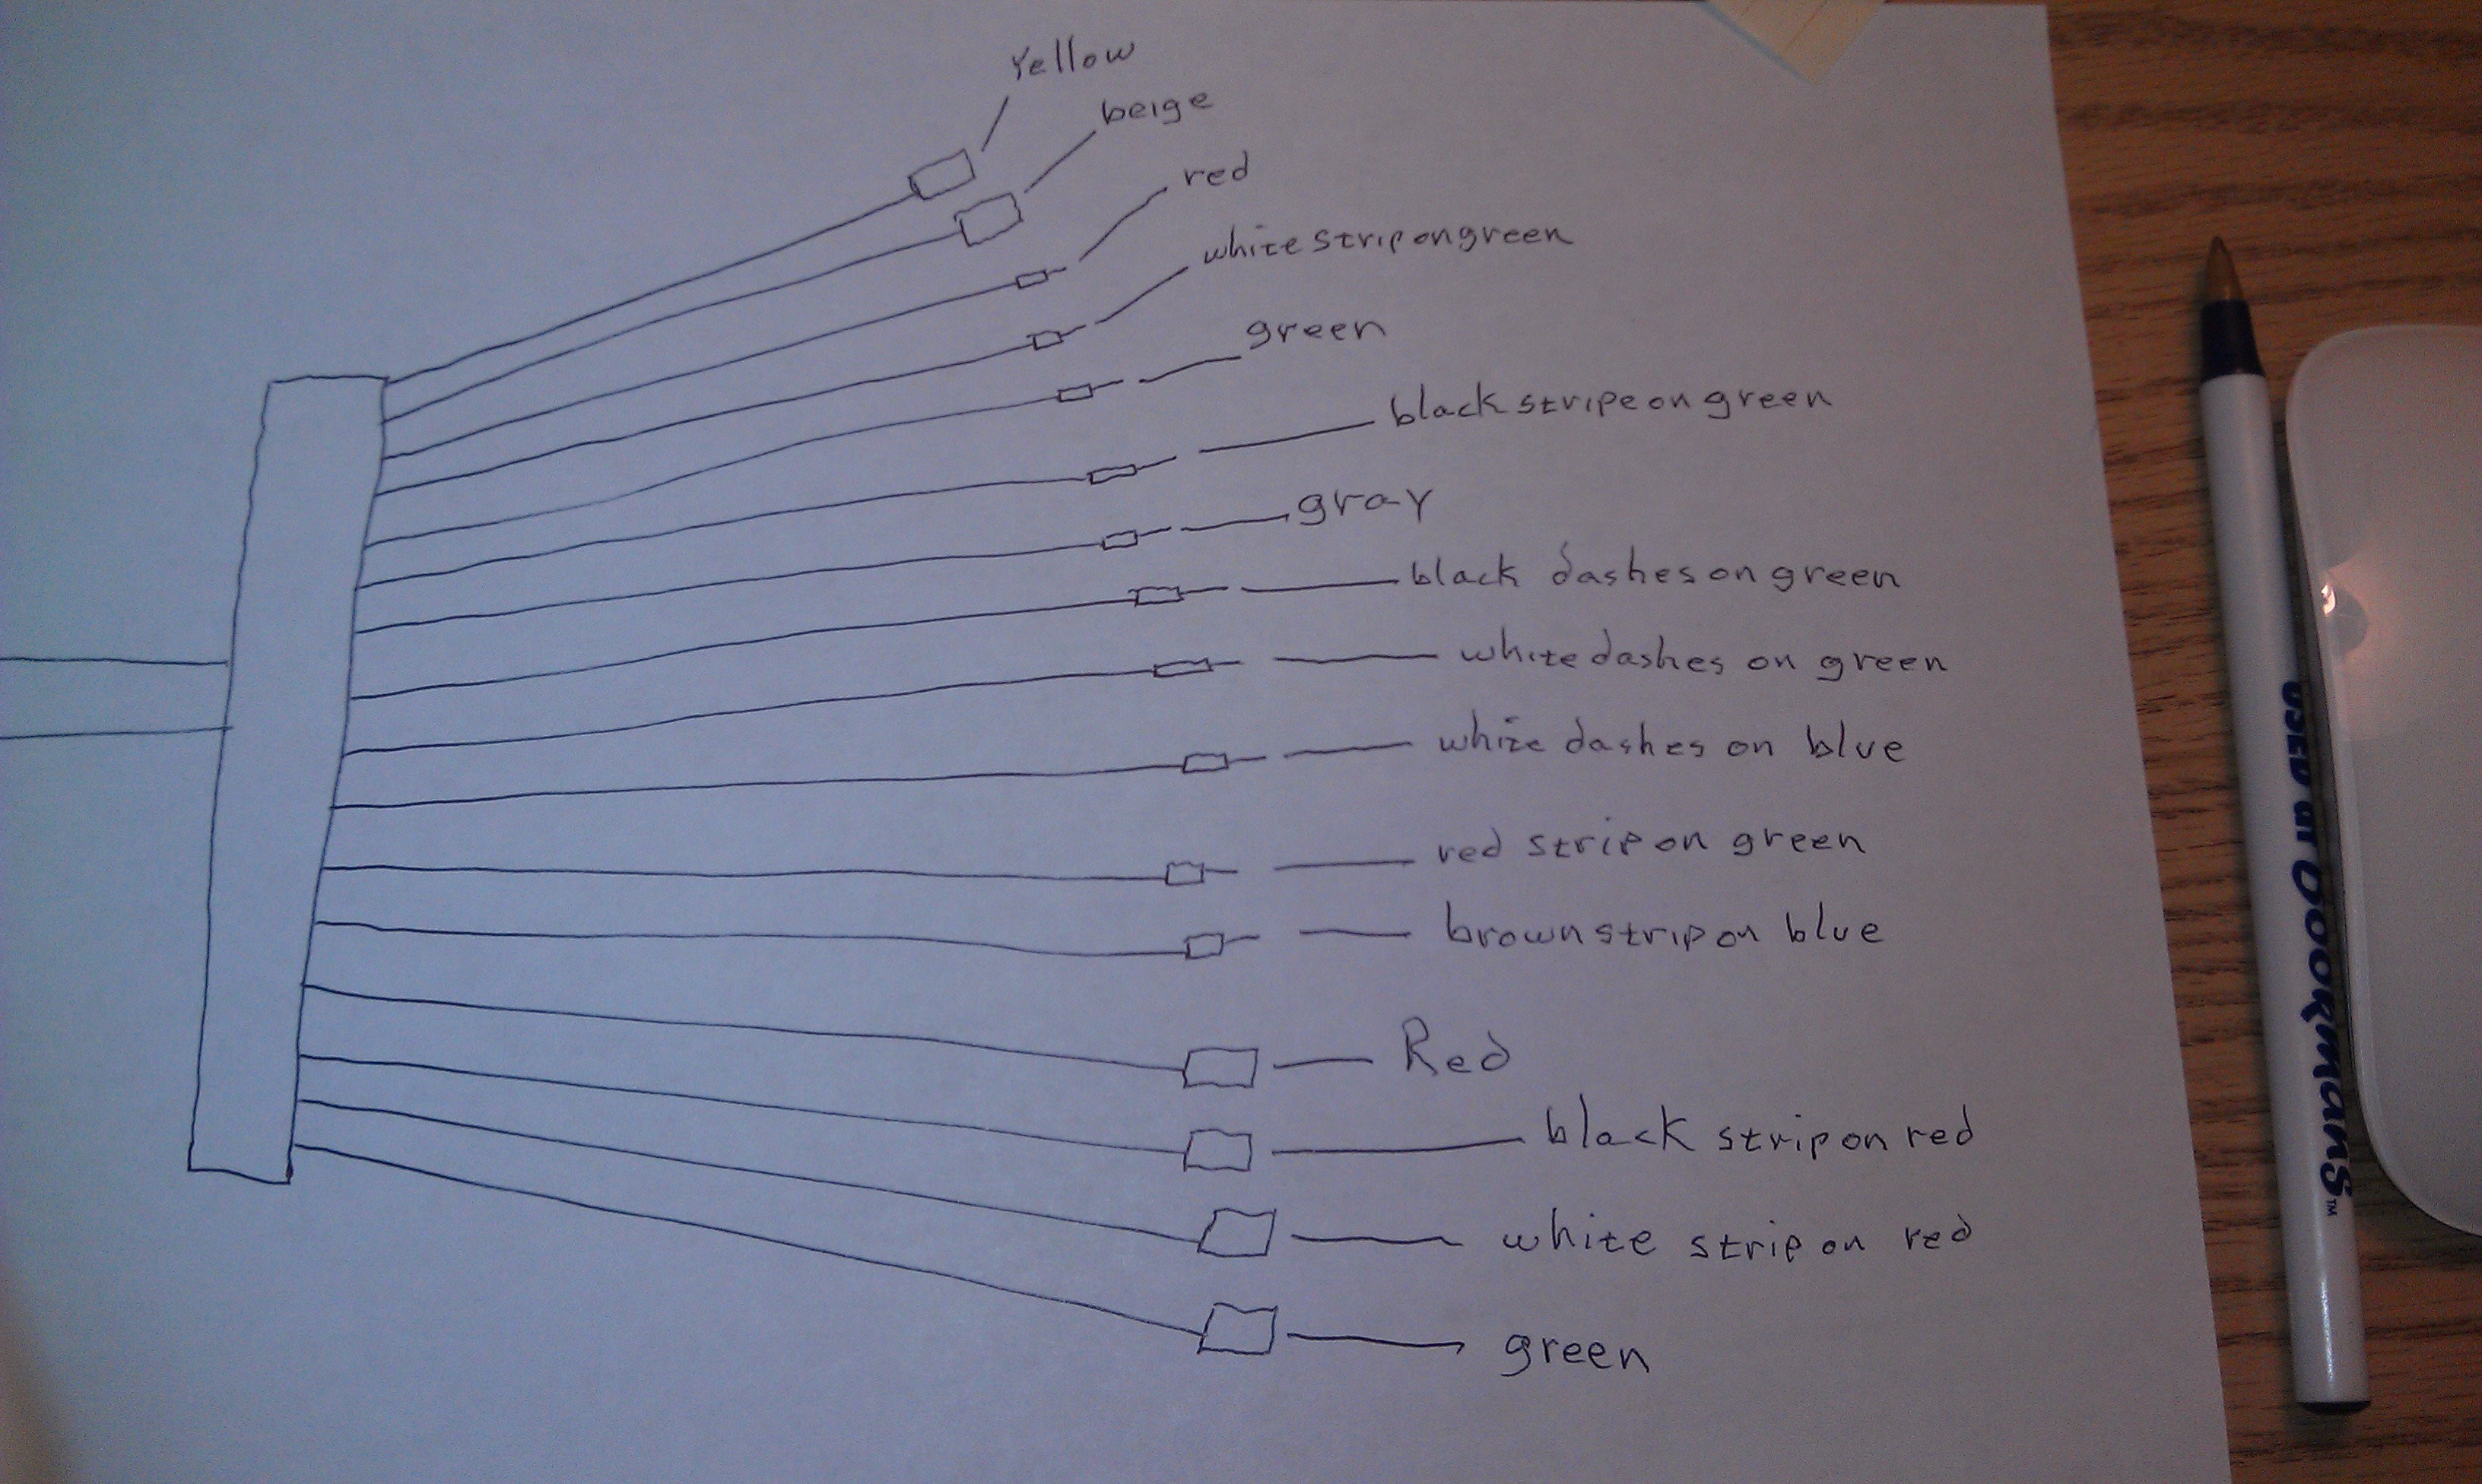 Yellow
beige
red
white strip on green
green
black stripe on green
gray
black dashes on green
white dashes on green
white dashes on blue
red strip on green
brown strip on blue
Red
black strip on red
white strip on red
green
USED at BOOKMANS™